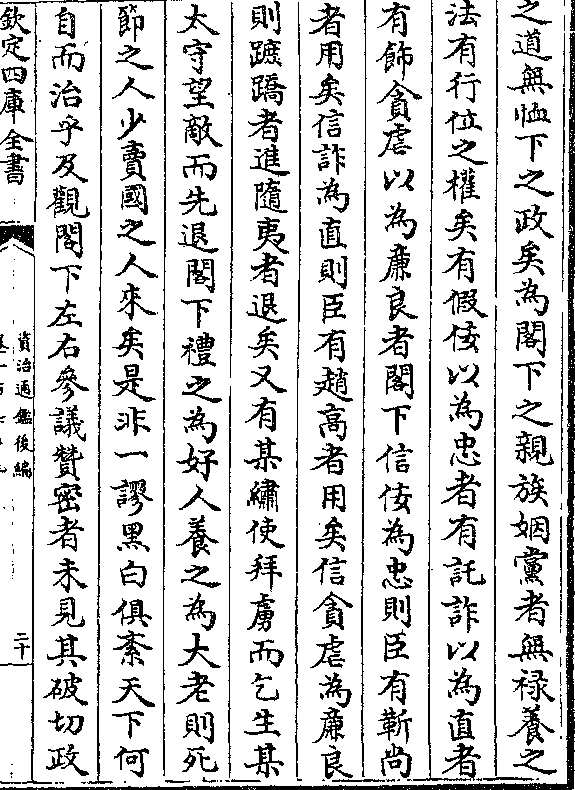 之道無恤下之政矣為閣下之親族姻黨者無祿養之
法有行位之權矣有假佞以為忠者有託詐以為直者
有飾貪虐以為廉良者閣下信佞為忠則臣有靳尚
者用矣信詐為直則臣有趙高者用矣信貪虐為廉良
則蹠蹻者進隨夷者退矣又有某繡使拜虜而乞生某
太守望敵而先退閣下禮之為好人養之為大老則死
節之人少賣國之人來矣是非一謬黑白俱紊天下何
自而治乎及觀閣下左右參議贊密者未見其破切政
欽定四庫全書
資治通鑑後編
二十